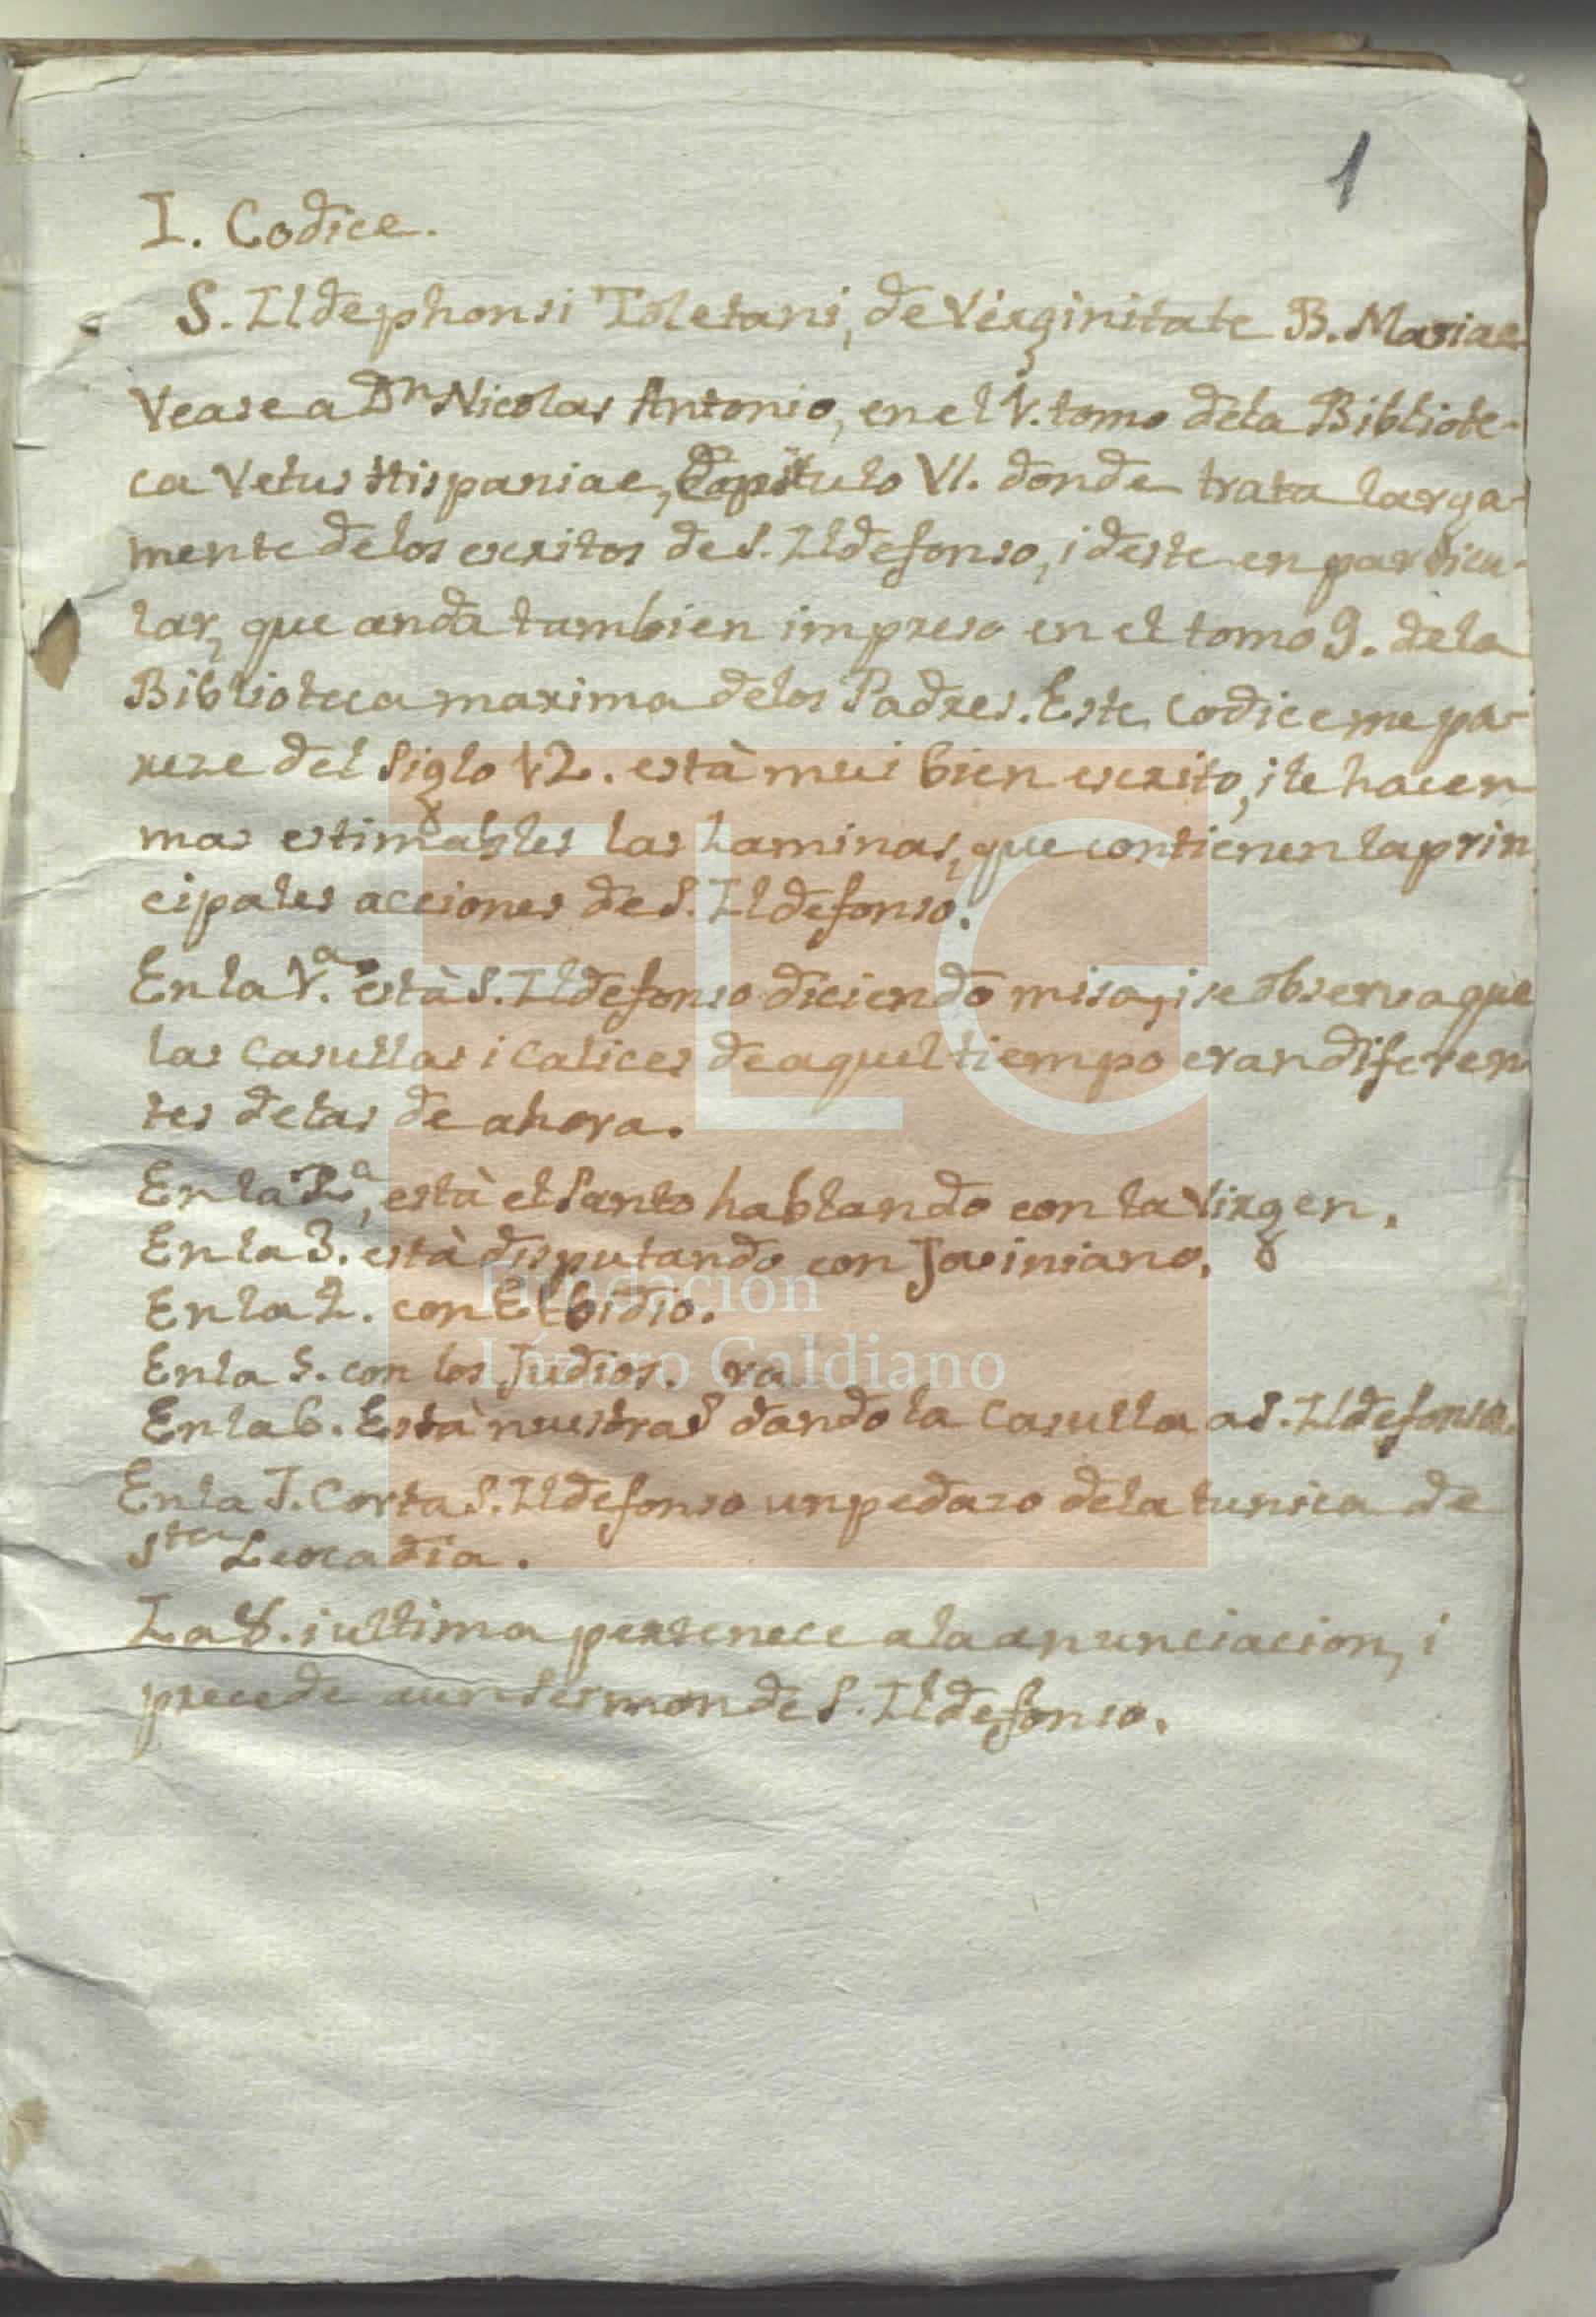 1
I. Codice.
S. Ildephonsi Toletani, de Virginitate B. Mariae
Vease a Dn Nicolas Antonio, en el V. tomo dela Bibliote-
ca Vetus Hispaniae, Capitulo VI. donde trata larga-
mente delos escritos de S. Ildefonso, i deste en particu-
lar, que anda tambien impreso en el tomo 9. dela
Biblioteca maxima delos Padres. Este codice me pa-
reze del Siglo 12. està mui bien escrito, i le hacen
mas estimables las Laminas, que contienen la prin
cipales acciones de S. Ildefonso.
En la 1.a està S. Ildefonso diciendo misa, i se observa que
las Casullas i Calices de aquel tiempo eran diferen
tes delas de ahora.
En la 2a, està el Santo hablando con la Virgen.
En la 3. està disputando con Joviniano.
En la 4. con Elbidio.
En la 5. con los Judios.
En la 6. Està nuestra Sra dando la Casulla a S. Ildefonso.
En la 7. Corta S. Ildefonso un pedazo dela tunica de
Sta Leocadia.
La 8. i ultima pertenece ala anunciacion, i
precede a un Sermon de S. Ildefonso.
FLG
Fundación
Lázaro Galdiano